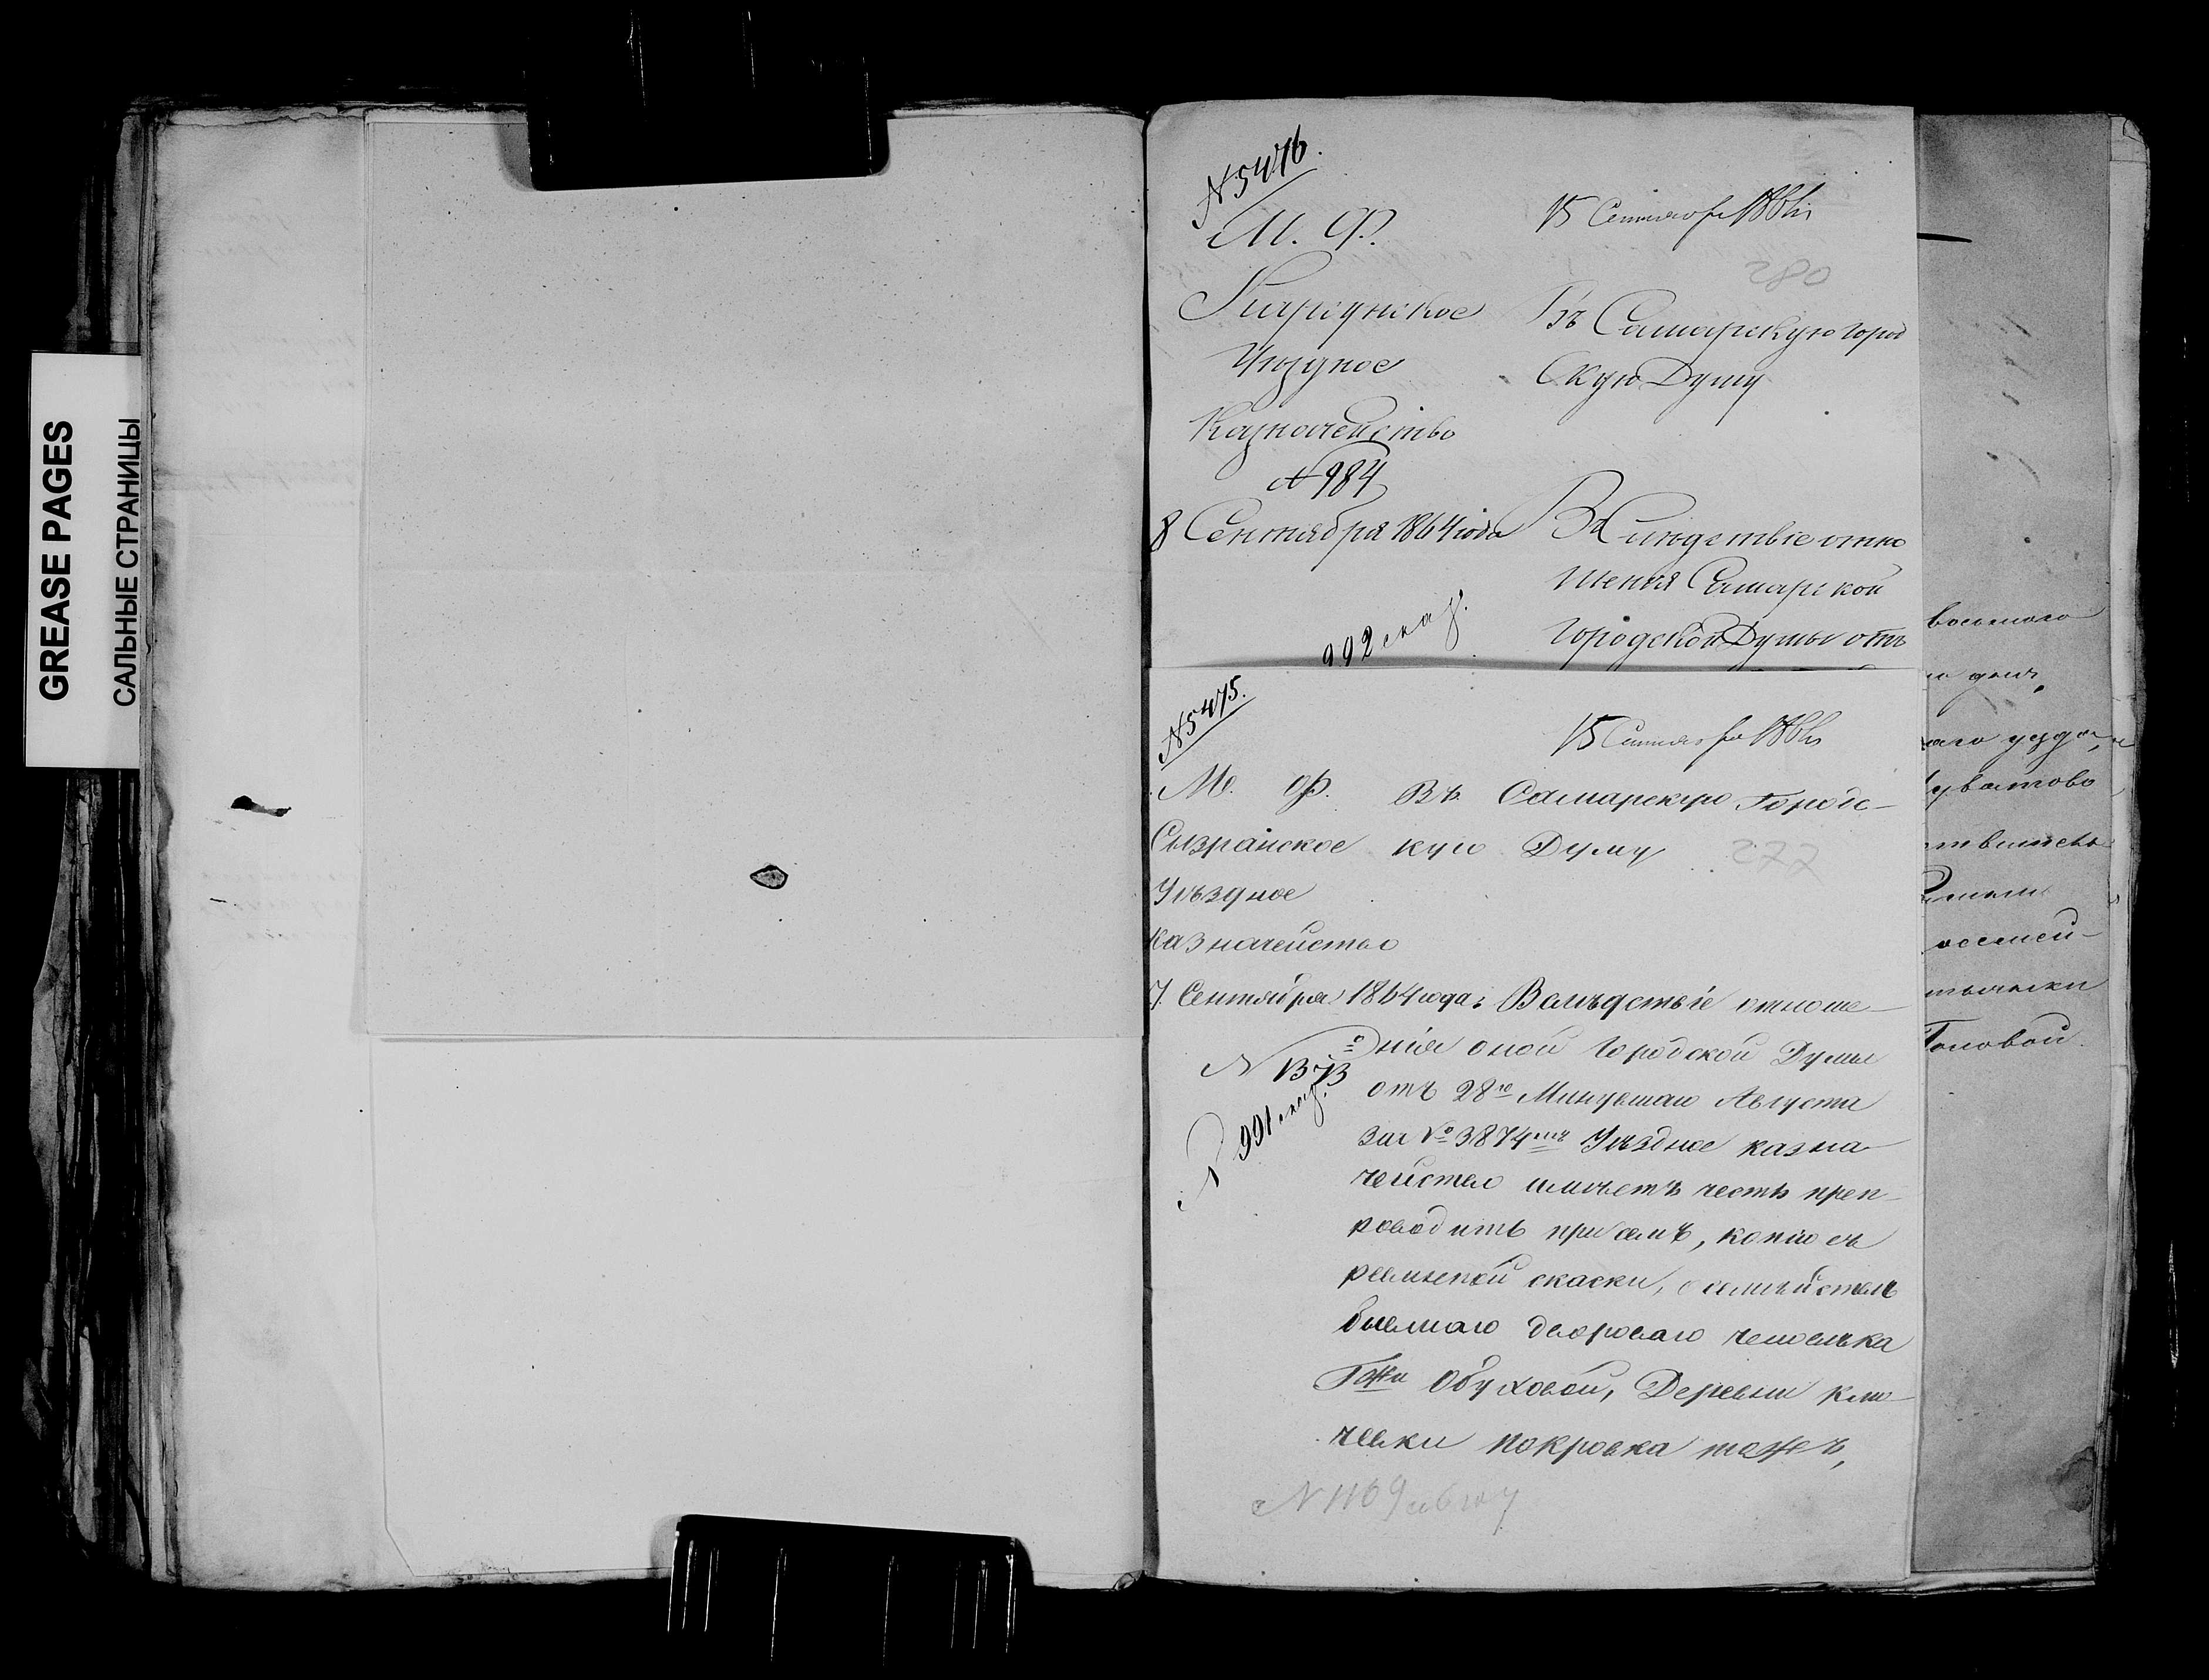 GREASE PAGES
САЛЬНЫЕ СТРАНИЦЫ
№ 5476.
М. Ф.
15 Сентября 1864
280
Уѣздное
Казначейство
№ 984
8 Сентября 1864 года
992
Въ Самарскую Город
скую Думу
Въ Слѣдствіе отно
шенія Самарской
Городской Думы отъ
№ 5475.
15 Сентября 1864
М. Ф.
Сызранское
Уѣздное
казначейство
7. Сентября 1864 года
№ 1373
991
Въ Самарскую Городс-
кую Думу
277
Вслѣдствіе отноше-
нія оной Городской Думы
отъ 28го Минувшаго Августа
за № 3874мъ Уѣздное казна-
чейство имѣетъ честь преп-
роводить при семъ, копію съ
ревизской скаски, о семѣйствѣ
бывшаго двороваго человѣка
Гжи Обуховой, Деревни Клю-
чевки покровка тожъ,
№ 1169
восьмого
день,
уѣзда,
Головой